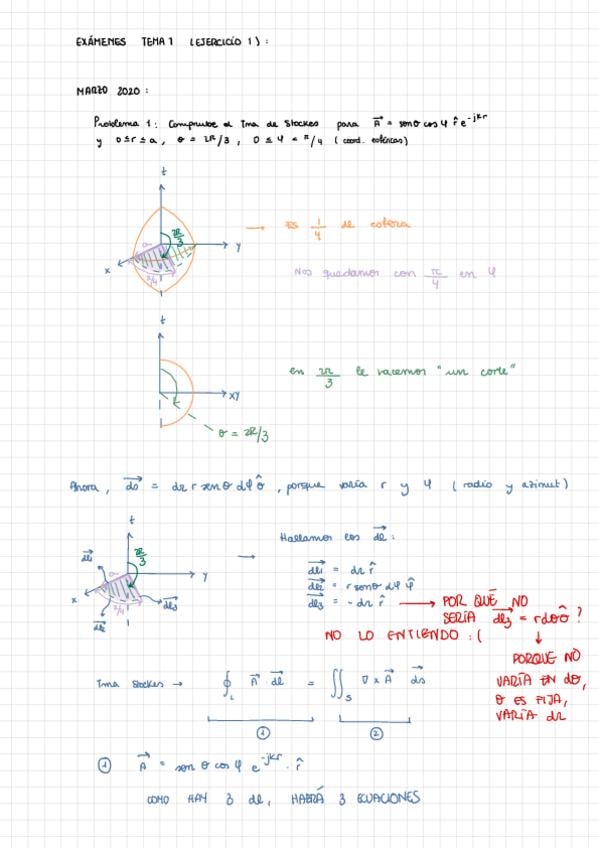 EXÁMENES TEMA 1 (EJERCICIO 1):
MARZO 2020:
Problema 1: Compruebe el Tma de Stockes para A⃗ = senθ cos φ r̂ e^-jkr
y 0≤r≤a, θ = 2π/3, 0 ≤ φ < π/4 (coord. esféricas)
z
2π/3
a
y
x
π/4
→ ES 1/4 de esfera
Nos quedamos con π/4 en φ
z
xy
θ = 2π/3
en 2π/3 le hacemos "un corte"
Ahora, ds⃗ = dr r senθ dφ θ̂, porque varía r y φ (radio y azimut)
z
2π/3
dl1⃗
a
y
x
π/4
dl3⃗
dl2⃗
→ Hallamos los dl⃗:
dl1⃗ = dr r̂
dl2⃗ = r senθ dφ φ̂
dl3⃗ = -dr r̂ → POR QUÉ NO
SERÍA dl3⃗ = rdθ θ̂?
NO LO ENTIENDO :(
↓
PORQUE NO
VARÍA EN dθ,
θ ES FIJA,
VARÍA dr
Tma Stockes → ∮L A⃗ · dl⃗ = ∬S ∇ x A⃗ ds⃗
① ②
① A⃗ = sen θ cos φ e^-jkr · r̂
COMO HAY 3 dl, HABRÁ 3 ECUACIONES